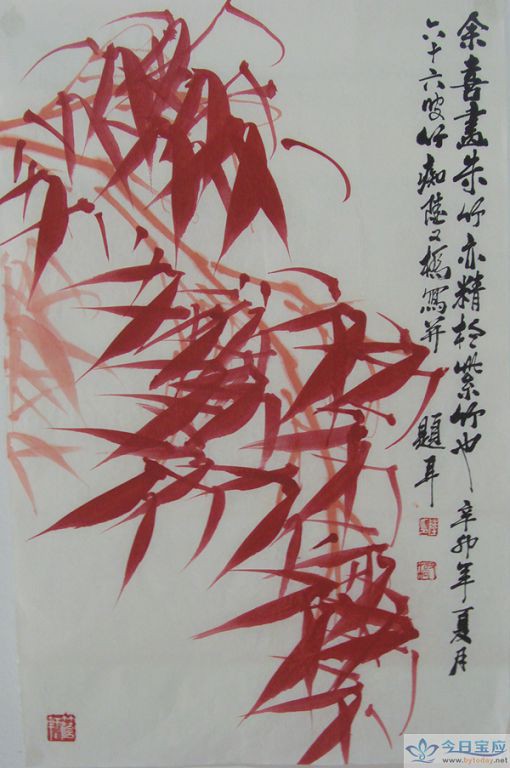 余喜画朱竹亦精於紫竹也辛卯年夏月
六十六叟竹痴陆又桥写并
题耳
今日宝应
www.bytoday.net